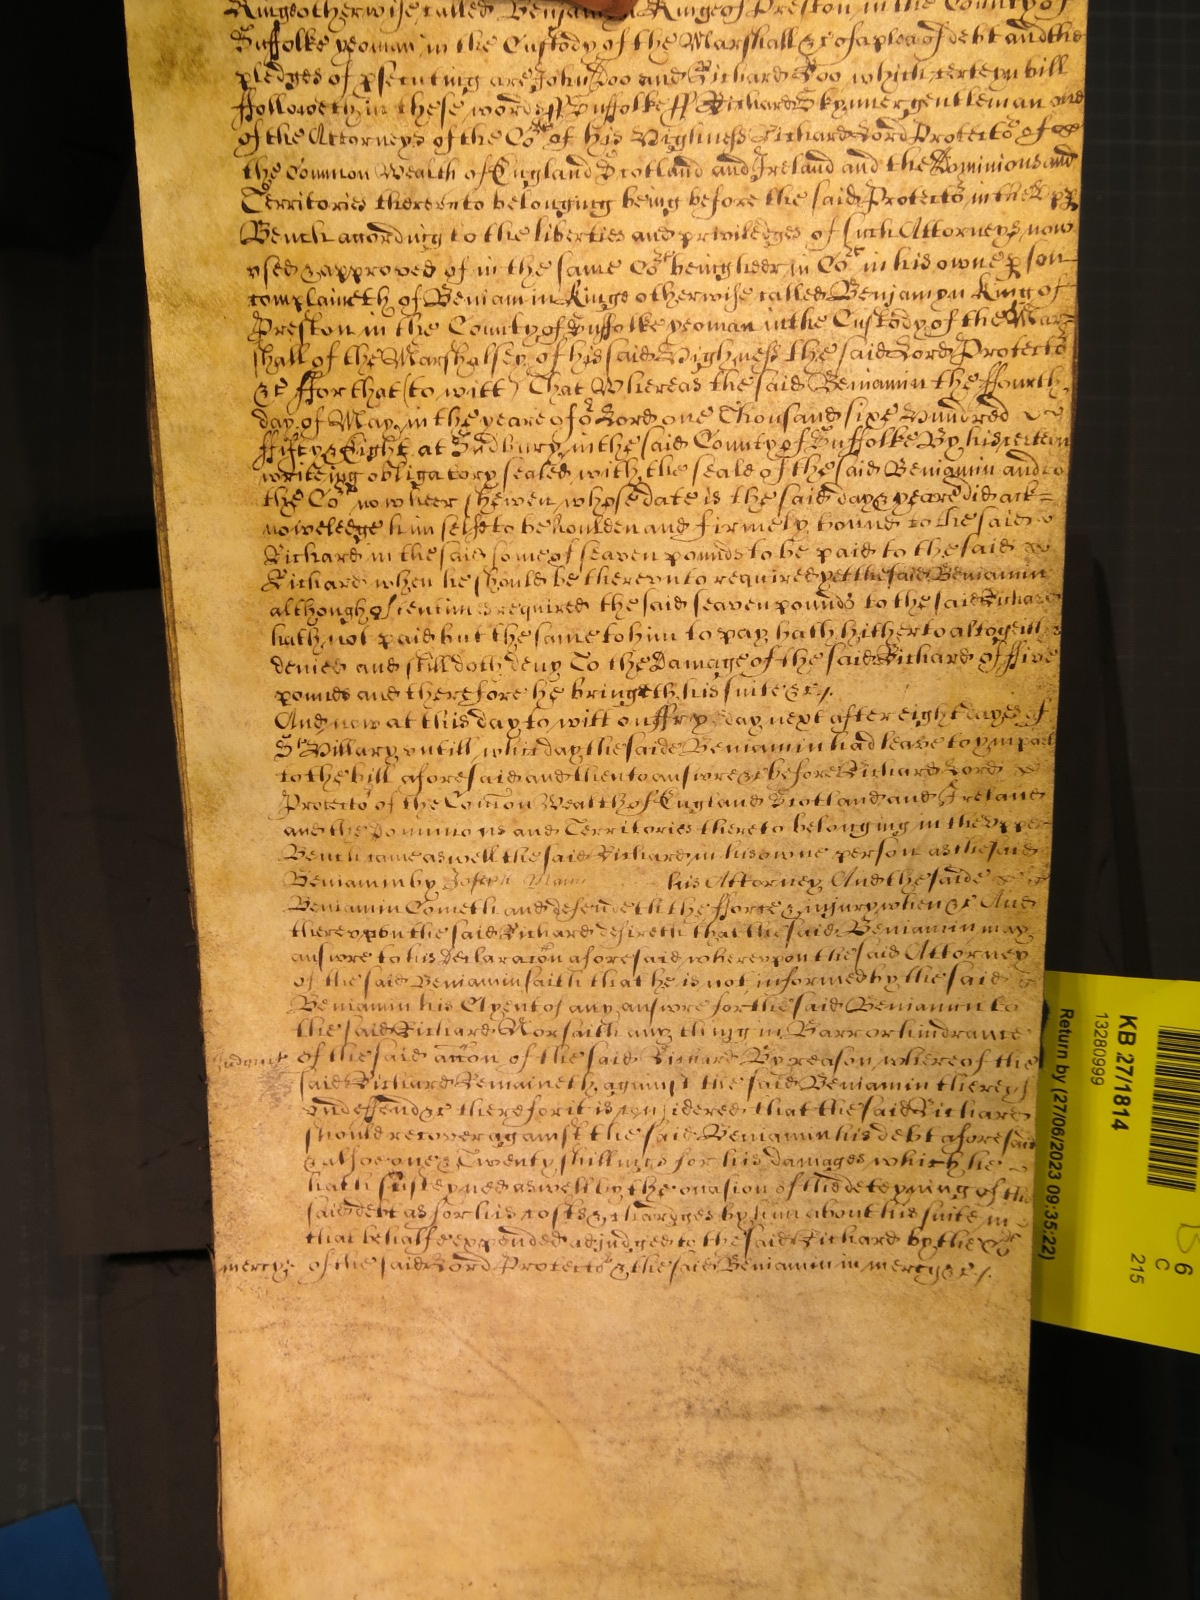 Kinge otherwise called Benjamin Kinge of Preston in the County of
Suffolke yeoman in the Custody of the Marshall &c of a plea of debt and the
pledges of psecuting are John Doo and Richard Roo which certeyn bill
ffolloweth in these words ff Suffolke ff Richard Skynner gentleman one
of the Attorneys of the Cort of his Highness Richard Lord Protector of
the Common Wealth of England Scotland and Ireland and the Dominions and
Territories therevnto belonging being before the said Protector in the
Bench acording to the liberties and priviledges of such Attorneys now
vsed & approved of in the same Cort being heer in Cort in his owne pson
complaineth of Beniamin Kinge otherwise called Benjamyn King of
Preston in the County of Suffolke yeoman in the Custody of the Mar=
shall of the Marshalsey of his said Highness the said Lord Protector
&c ffor that (to witt) That Whereas the said Beniamin the ffourth
day of May in the yeare of or Lord one Thousand sixe Hundred
ffifty & Eight at Sudbury in the said County of Suffolke By his certein
writeing obligatory sealed with the seale of the said Beniamin and to
the Cort now heer shewen whose date is the said day & yeare did ack=
noweledge himselfe to be houlden and firmely bound to the said
Richard in the said some of seaven pounds to be paid to the said
Richard when he should be therevnto required yet the said Beniamin
although often times required the said seaven pounds to the said Richard
hath not paid but the same to him to pay hath hitherto altogeither
denied and still doth deny To the Damage of the said Richard of ffive
pounds and therefore he bringeth his suite &c /.
And now at this day to witt on ffryday next after eight dayes of
St Hillary vntill which day the said Beniamin had leave to ymparl
to the bill aforesaid and then to answre &c before Richard Lord
Protector of the Comon Wealth of England Scotland and Ireland
and the Dominions and Territories thereto belonging in the vpper
Bench came aswell the said Richard in his owne person as the said
Beniamin by Joseph Mann his Attorney And the saide
Beniamin Cometh and defendeth the fforce & injury when &c And
therevpon the said Richard desireth that the said Beniamin may
answre to his Declaracon aforesaid wherevpon the said Attorney
of the said Beniamin saith that he is not informed by the said
Beniamin his Clyent of any answre for the said Beniamin to
the said Richard Nor saith any thing in Barr or hindrance
Judgmt of the said accon of the said Richard By reason whereof the
said Richard Remaineth against the said Beniamin thereof
vndeffend &c therefor it is considered that the said Richard
should recover against the said Beniamin his debt aforesaid
& alsoe one & Twenty shillings for his damages which he
hath susteyned aswell by the ocasion of the deteyning of the
said debt as for his costs & chardges by him about his suite in
that behalfe expended adjudged to the said Richard by the Cort
mercye of the said Lord Protector & the said Beniamin in mercy &c /.
KB 27/1814
13280999
Return by (27/06/2023 09:35:22)
6
C
215